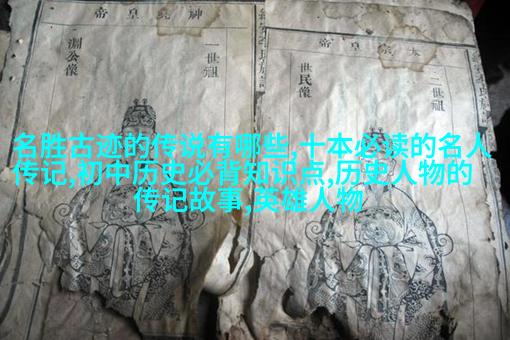 神堯皇帝
一世祖
淵公像
太宗皇帝
二世祖
世民像
名胜古迹的传说有哪些,十本必读的名人
传记,初中历史必背知识点,历史人物的
传记故事,英雄人物